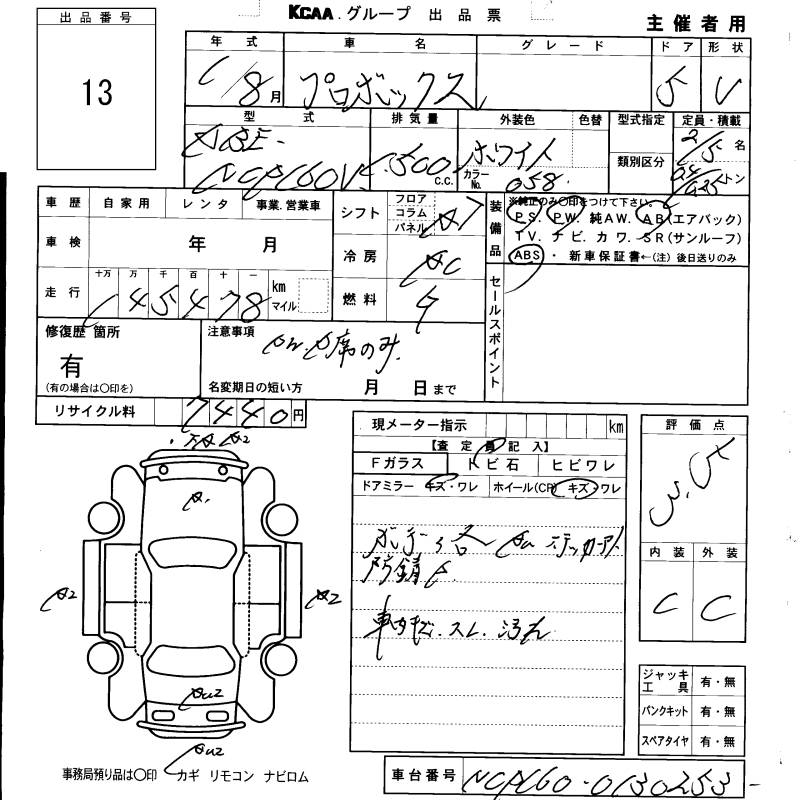 KCAA.グループ 出品票
主催者用
出品番号
13
年式 車名 グレード ドア 形状
/8月 プロボックス 5 V
型式 排気量 外装色 色替 型式指定 定員・積載
DBE-
NCP160V 1500 c.c. ホワイト 類別区分 2/5名
カラーNo. 058 トン
車歴 自家用 レンタ 事業.営業車
シフト フロア コラム パネル AT
装備品 ※純正のみ〇印をつけて下さい。
PS. PW. 純AW. AB(エアバック)
TV. ナビ. カワ. SR(サンルーフ)
ABS・新車保証書←(注)後日送りのみ
車検 年 月
冷房 AC
走行 十万 万 千 百 十 一
145478 km マイル
燃料
セールスポイント
修復歴 箇所
有
(有の場合は〇印を)
注意事項
席のみ.
名変期日の短い方 月 日まで
リサイクル料 7440円
現メーター指示 km
【査定員記入】
Fガラス トビ石 ヒビワレ
ドアミラー キズ・ワレ ホイール(CP) キズ・ワレ
評価点
3.5
内装 外装
C C
A2
A.
A2
A2
AU2
AU2
ボデー各 AU ステッカーアト
防錆
車内キズ.スレ.汚れ
ジャッキ工具 有・無
パンクキット 有・無
スペアタイヤ 有・無
事務局預り品は〇印 カギ リモコン ナビロム
車台番号 NCP160-0130253